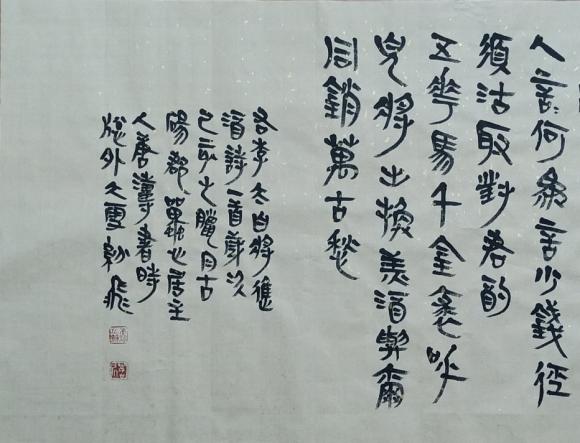 人言何為言少錢徑
須沽取對君酌
五花馬千金裘呼
兒將出換美酒與爾
同銷萬古愁
李太白將進
酒詩一首歲次
己亥之臘月古
陽郡居主
人濤書時
窗外大雪紛飛